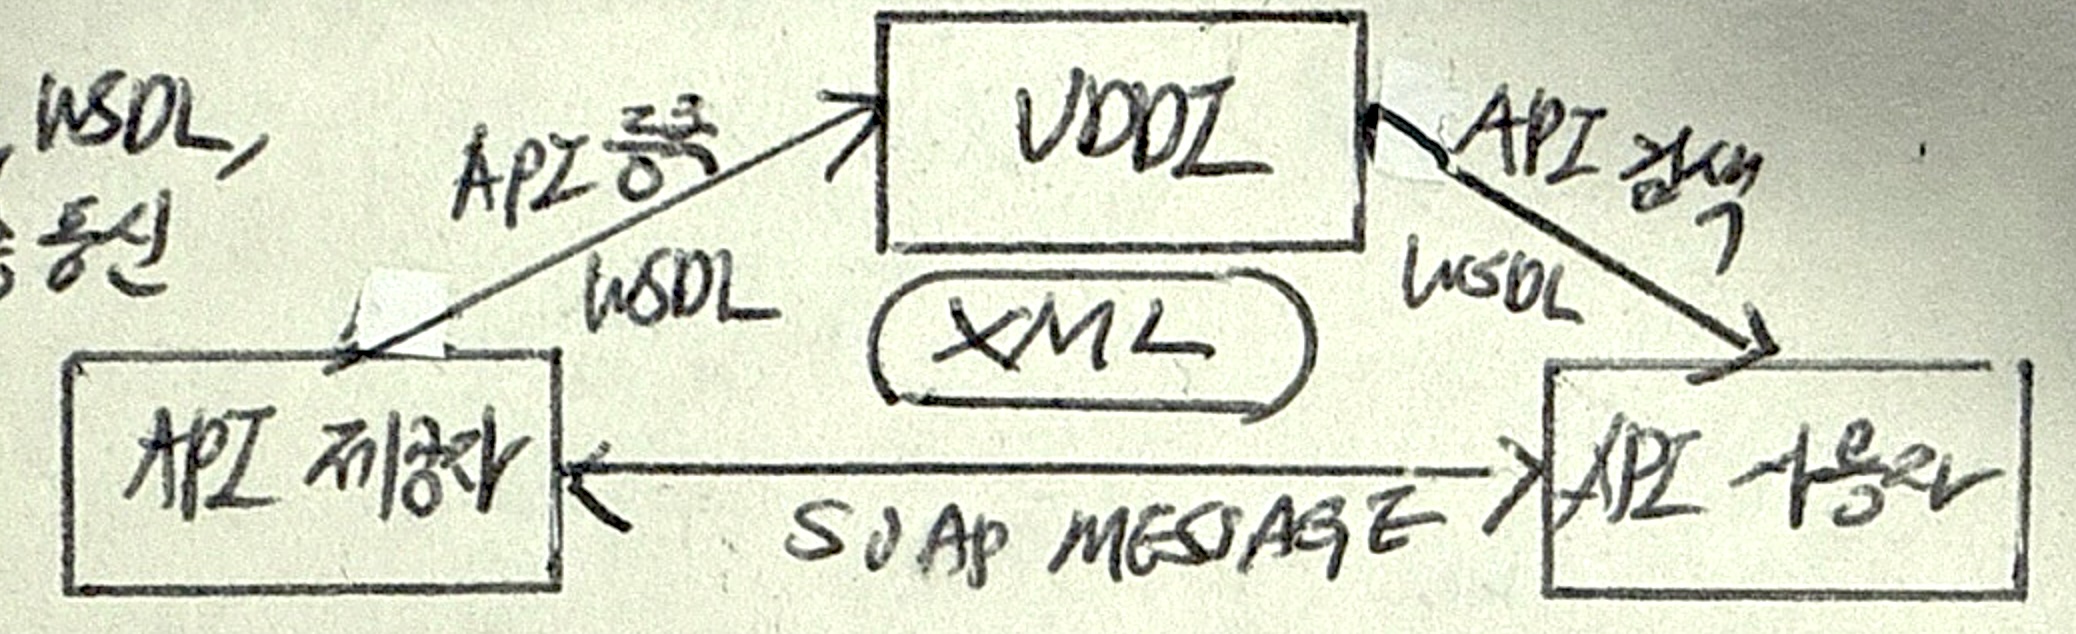 WSDL,
통신
API 등록
WSDL
UDDI
API 검색
WSDL
XML
API 제공자
SOAP MESSAGE
API 사용자